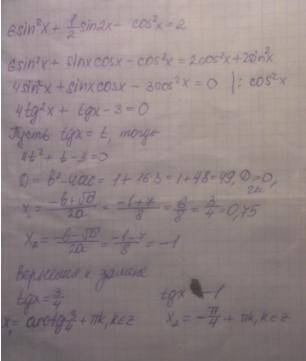 6sin²x + 1/2 sin2x - cos²x = 2
6sin²x + sinxcosx - cos²x = 2cos²x + 2sin²x
4sin²x + sinxcosx - 3cos²x = 0 |: cos²x
4tg²x + tgx - 3 = 0
Пусть tgx = t, тогда
4t² + t - 3 = 0
D = b² - 4ac = 1 + 16·3 = 1 + 48 = 49, D>0,
x₁ = (-b+√D)/2a = (-1+7)/8 = 6/8 = 3/4 = 0,75
x₂ = (-b-√D)/2a = (-1-7)/8 = -1
Вернемся к замене
tgx = 3/4 tgx -1
x₁ = arctg 3/4 + πk, k∈z x₂ = -π/4 + πk, k∈z